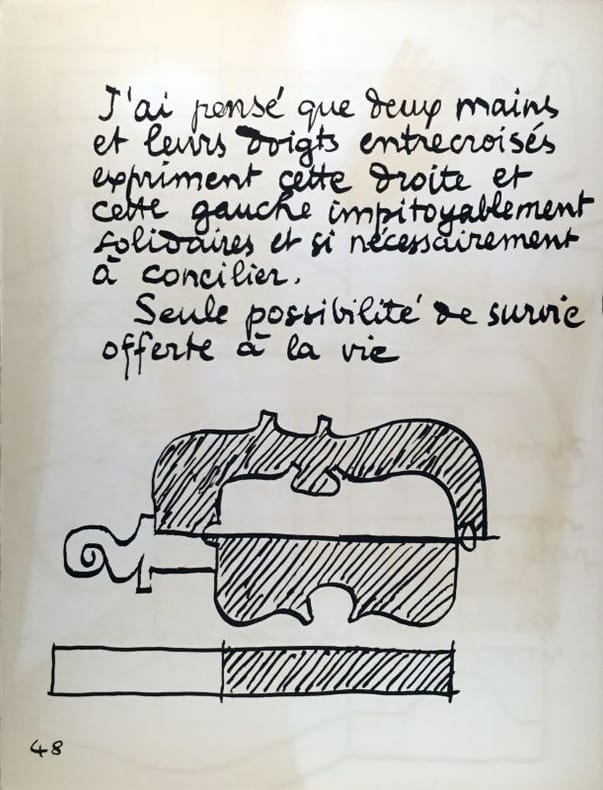 J'ai pensé que deux mains
et leurs doigts entrecroisés
expriment cette droite et
cette gauche impitoyablement
solidaires et si nécessairement
à concilier.
Seule possibilité de survie
offerte à la vie
48